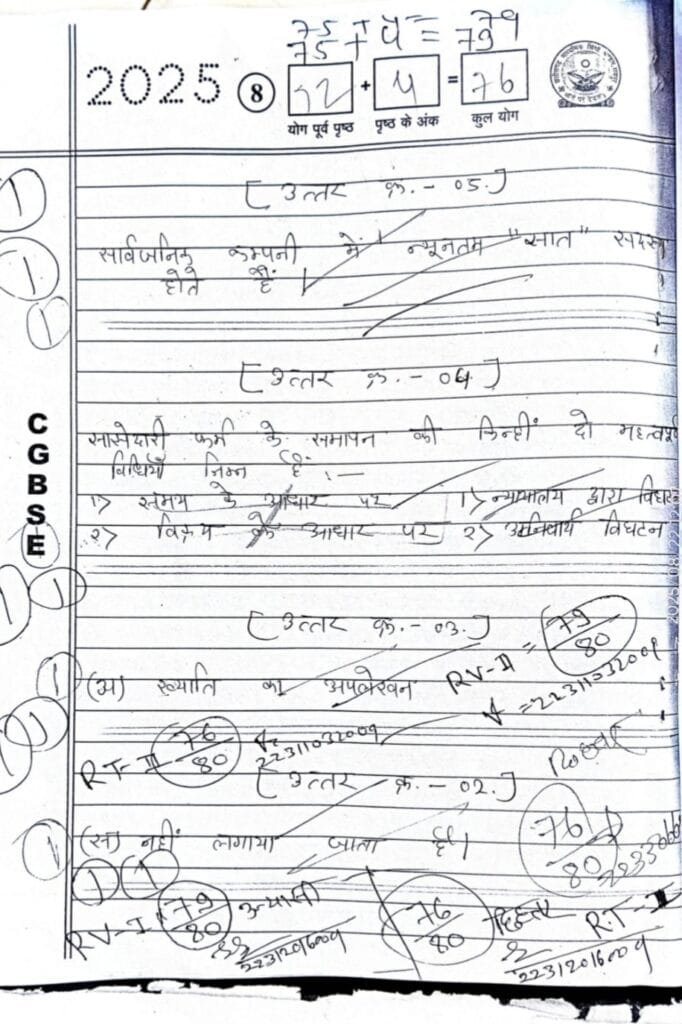 75 + 4 = 79
2025 8 72 + 4 = 76
योग पूर्व पृष्ठ पृष्ठ के अंक कुल योग
[उत्तर क्र.-05.]
सार्वजनिक कम्पनी में न्यूनतम "सात" सदस्य
होते हैं
[उत्तर क्र.-04]
साझेदारी फर्म के समापन की किन्हीं दो महत्वपूर्ण
विधियाँ निम्न हैं:—
1> समय के आधार पर 1> न्यायालय द्वारा विघटन
२> विक्रय के आधार पर २> अनिवार्य विघटन
CGBSE
[उत्तर क्र.-03.]
(अ) ख्याति का अपलेखन
RV-II = 79/80
22311032009
RT-II 76/80
22311032009
[उत्तर क्र.-02.]
(स) नहीं लगाया जाता है।
76/80
RV-I 79/80 उन्यासी
22312016009
76/80 छिहत्तर RT-I
22312016009